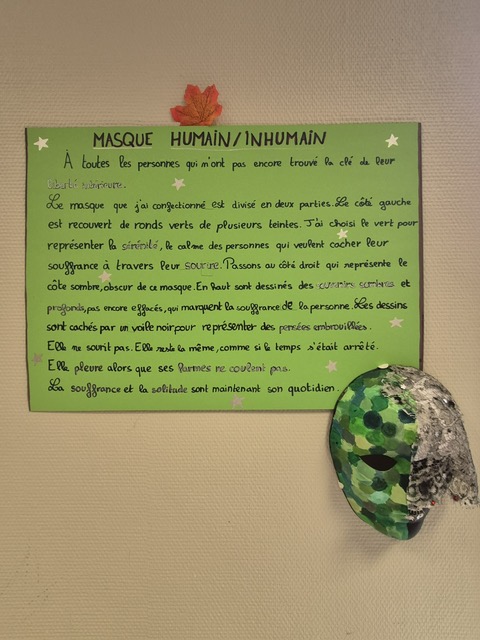 MASQUE HUMAIN/INHUMAIN
À toutes les personnes qui n'ont pas encore trouvé la clé de leur
liberté intérieure.
Le masque que j'ai confectionné est divisé en deux parties. Le côté gauche
est recouvert de ronds verts de plusieurs teintes. J'ai choisi le vert pour
représenter la sérénité, le calme des personnes qui veulent cacher leur
souffrance à travers leur sourire. Passons au côté droit qui représente le
côté sombre, obscur de ce masque. En haut sont dessinés des sombres et
profonds, pas encore effacés, qui marquent la souffrance de la personne. Les dessins
sont cachés par un voile noir pour représenter des pensées embrouillées.
Elle ne sourit pas. Elle reste la même, comme si le temps s'était arrêté.
Elle pleure alors que ses larmes ne coulent pas.
La souffrance et la solitude sont maintenant son quotidien.